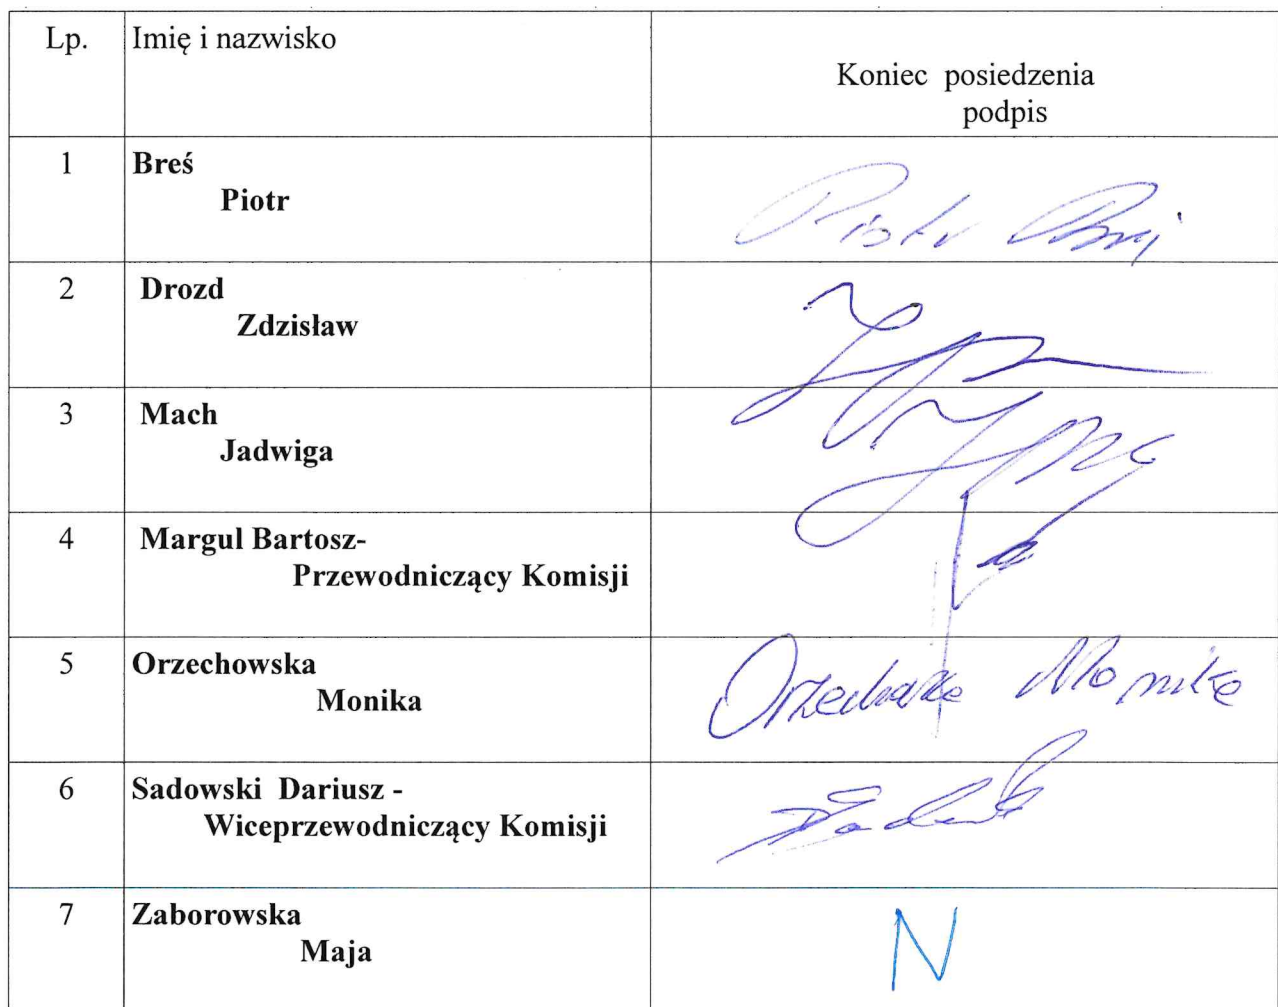 Lp. Imię i nazwisko
Koniec posiedzenia
podpis
1 Breś
Piotr
Piotr
2 Drozd
Zdzisław
3 Mach
Jadwiga
4 Margul Bartosz-
Przewodniczący Komisji
5 Orzechowska
Monika
Monika
6 Sadowski Dariusz -
Wiceprzewodniczący Komisji
7 Zaborowska
Maja
N